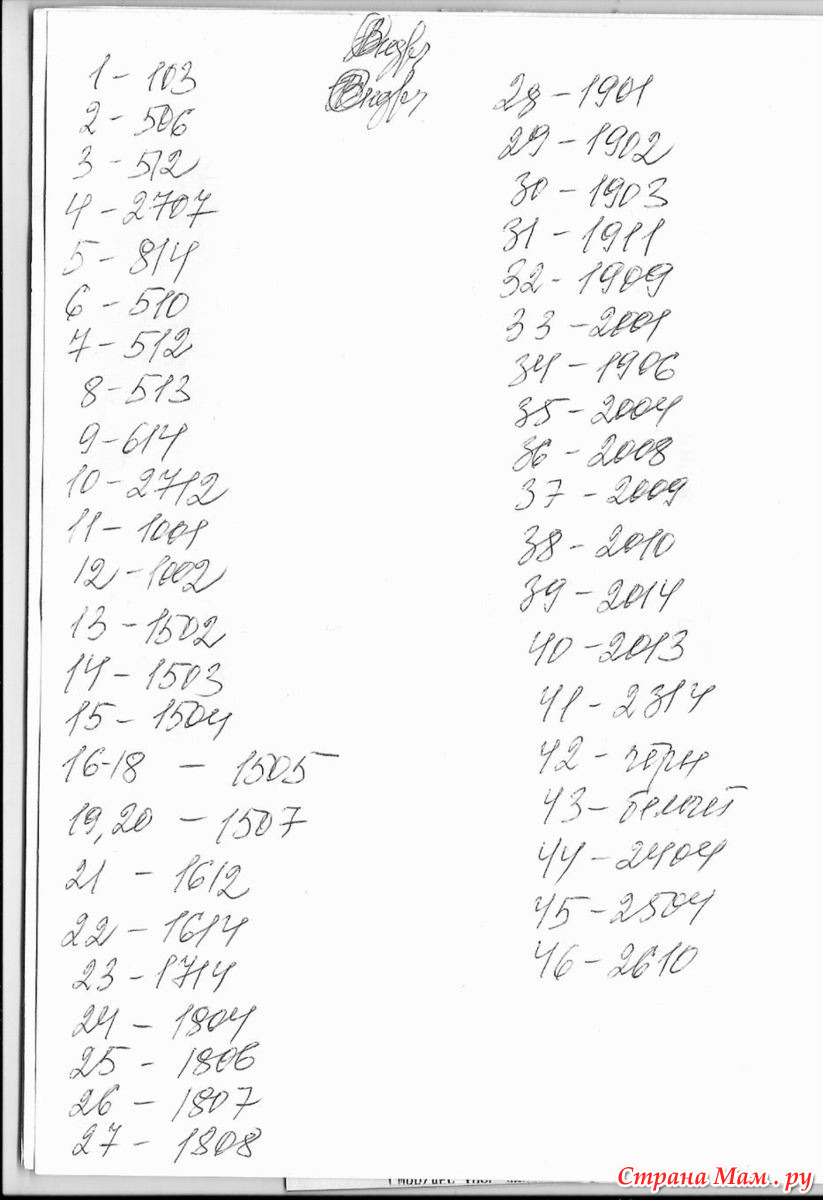 1 - 103
2 - 506
3 - 512
4 - 2707
5 - 814
6 - 510
7 - 512
8 - 513
9 - 614
10 - 2712
11 - 1001
12 - 1002
13 - 1502
14 - 1503
15 - 1504
16-18 - 1505
19,20 - 1507
21 - 1612
22 - 1614
23 - 1714
24 - 1804
25 - 1806
26 - 1807
27 - 1808
28 - 1901
29 - 1902
30 - 1903
31 - 1911
32 - 1909
33 - 2001
34 - 1906
35 - 2004
36 - 2008
37 - 2009
38 - 2010
39 - 2014
40 - 2013
41 - 2314
42 - черн
43 -
44 - 2404
45 - 2504
46 - 2610
Страна Мам.ру